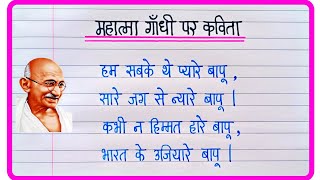 महात्मा गाँधी पर कविता
हम सबके थे प्यारे बापू ,
सारे जग से न्यारे बापू |
कभी न हिम्मत हारे बापू ,
भारत के उजियारे बापू |